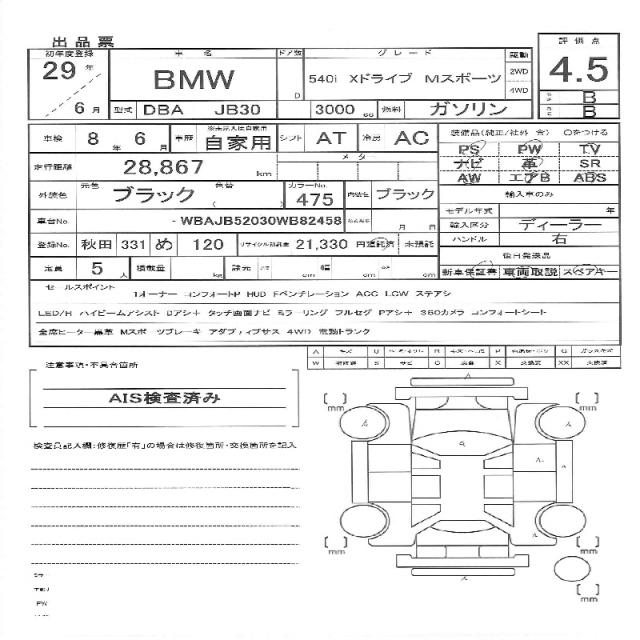 出品票
初年度登録 車名 ドア数 グレード 駆動 評価点
29年 BMW D 540i Xドライブ Mスポーツ 2WD 4WD 4.5
6月 型式 DBA JB30 3000cc 燃料 ガソリン B B
車検 8年 6月 車歴 ※未記入は自家用 自家用 シフト AT 冷房 AC 装備品(純正/社外 含) ○をつける
走行距離 28,867 km メーター PS PW TV
ナビ 革 SR
AW エアB ABS
外装色 元色 ブラック 色替 ( カラーNo. 475 内装色 ブラック 輸入車のみ
モデル年式 年
車台No. - WBAJB52030WB82458 月 日 輸入区分 ディーラー
登録No. 秋田 331 め 120 リサイクル預託金 21,330 円 預託済 未預託 ハンドル 右
定員 5人 積載量 kg 諸元 cm 幅 cm cm 後日発送品
新車保証書 車両取説 スペアキー
セールスポイント
1オーナー コンフォートP HUD Fベンチレーション ACC LCW ステアシ
LED/H ハイビームアシスト Dアシ+ タッチ画面ナビ ミラーリング フルセグ Pアシ+ 360カメラ コンフォートシート
全席ヒーター黒革 Mスポーツブレーキ アダプティブサス 4WD 電動トランク
A U R P G
W S C X XX
注意事項・不具合箇所
AIS検査済み
検査員記入欄:修復歴「有」の場合は修復箇所・交換箇所を記入
[ ] mm [ ] mm
A A
A
[ ] mm [ ] mm
[ ] mm